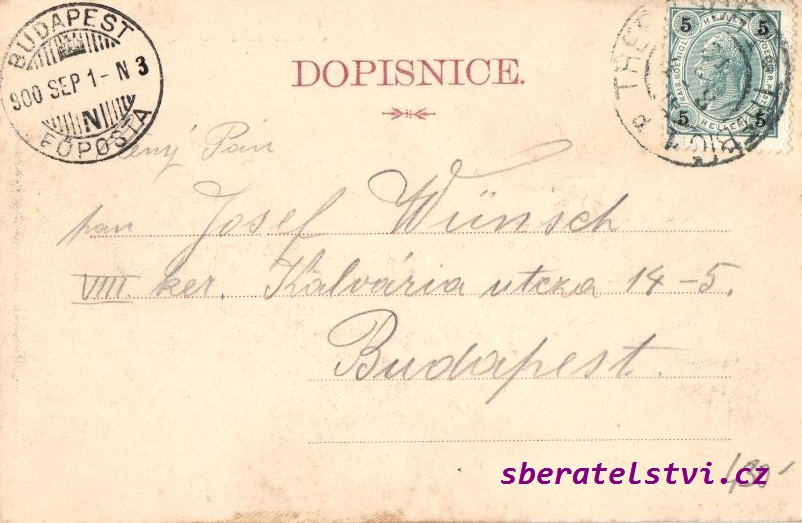 BUDAPEST
900 SEP 1 - N 3
N
FŐPOSTA
DOPISNICE.
5 HELLER 5
5 HELLER 5
Pán
pan Josef Wünsch
VIII. ker. Kalvária utcza 14-5.
Budapest.
430
sberatelstvi.cz